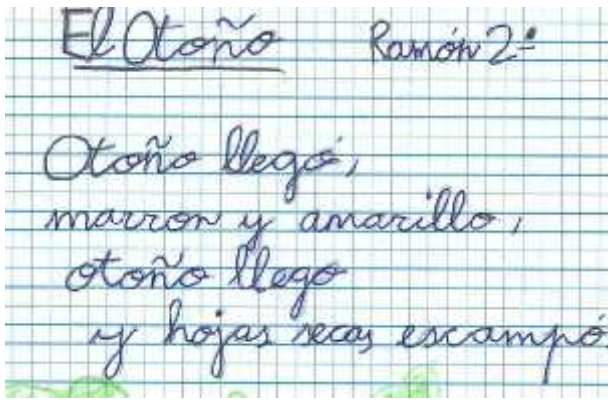 El Otoño Ramón 2º
Otoño llegó,
marron y amarillo,
otoño llego
y hojas secas escampó